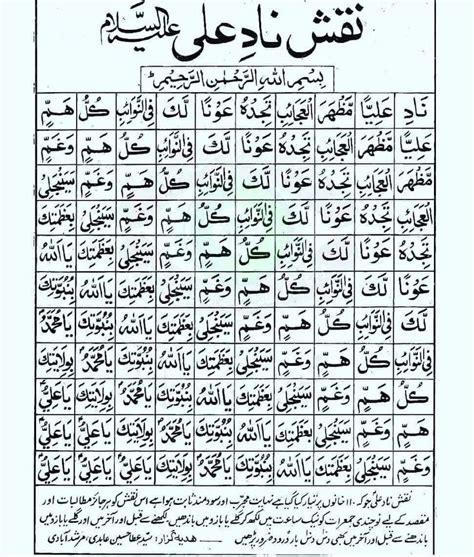 نقش نادِ علی علیہ السلام
بِسْمِ اللهِ الرَّحْمٰنِ الرَّحِیْمِ
نَادِ عَلِیًّا مَّظْهَرَ الْعَجَائِبِ تَجِدْهُ عَوْنًا لَّكَ فِی النَّوَائِبِ كُلُّ هَمٍّ
عَلِیًّا مَّظْهَرَ الْعَجَائِبِ تَجِدْهُ عَوْنًا لَّكَ فِی النَّوَائِبِ كُلُّ هَمٍّ وَغَمٍّ
مَّظْهَرَ الْعَجَائِبِ تَجِدْهُ عَوْنًا لَّكَ فِی النَّوَائِبِ كُلُّ هَمٍّ وَغَمٍّ سَیَنْجَلِیْ
الْعَجَائِبِ تَجِدْهُ عَوْنًا لَّكَ فِی النَّوَائِبِ كُلُّ هَمٍّ وَغَمٍّ سَیَنْجَلِیْ بِعَظْمَتِكَ
تَجِدْهُ عَوْنًا لَّكَ فِی النَّوَائِبِ كُلُّ هَمٍّ وَغَمٍّ سَیَنْجَلِیْ بِعَظْمَتِكَ یَااَللهُ
عَوْنًا لَّكَ فِی النَّوَائِبِ كُلُّ هَمٍّ وَغَمٍّ سَیَنْجَلِیْ بِعَظْمَتِكَ یَااَللهُ بِنُبُوَّتِكَ
لَّكَ فِی النَّوَائِبِ كُلُّ هَمٍّ وَغَمٍّ سَیَنْجَلِیْ بِعَظْمَتِكَ یَااَللهُ بِنُبُوَّتِكَ یَامُحَمَّدُ
فِی النَّوَائِبِ كُلُّ هَمٍّ وَغَمٍّ سَیَنْجَلِیْ بِعَظْمَتِكَ یَااَللهُ بِنُبُوَّتِكَ یَامُحَمَّدُ بِوِلَایَتِكَ
كُلُّ هَمٍّ وَغَمٍّ سَیَنْجَلِیْ بِعَظْمَتِكَ یَااَللهُ بِنُبُوَّتِكَ یَامُحَمَّدُ بِوِلَایَتِكَ یَاعَلِیُّ
هَمٍّ وَغَمٍّ سَیَنْجَلِیْ بِعَظْمَتِكَ یَااَللهُ بِنُبُوَّتِكَ یَامُحَمَّدُ بِوِلَایَتِكَ یَاعَلِیُّ یَاعَلِیُّ
وَغَمٍّ سَیَنْجَلِیْ بِعَظْمَتِكَ یَااَللهُ بِنُبُوَّتِكَ یَامُحَمَّدُ بِوِلَایَتِكَ یَاعَلِیُّ یَاعَلِیُّ یَاعَلِیُّ
نقش نادِ علیؑ جو کہ ۱۱۰ خانوں پر تیار کیا گیا ہے نہایت مجرب اور سود مند ثابت ہوا ہے اس نقش کو ہر جائز مطالبات اور
مقصد کے لیے نوچندی جمعرات کو نیک ساعت میں لکھ کر گلے یا بازو میں باندھیں۔ لکھنے سے قبل اور آخر میں اور گلے یا بازو میں
باندھنے سے قبل اور آخر میں دس دس بار درود ضرور پڑھیں۔ ھدیہ گزار: سید عطا حسین عابدی۔ مرشد آبادی